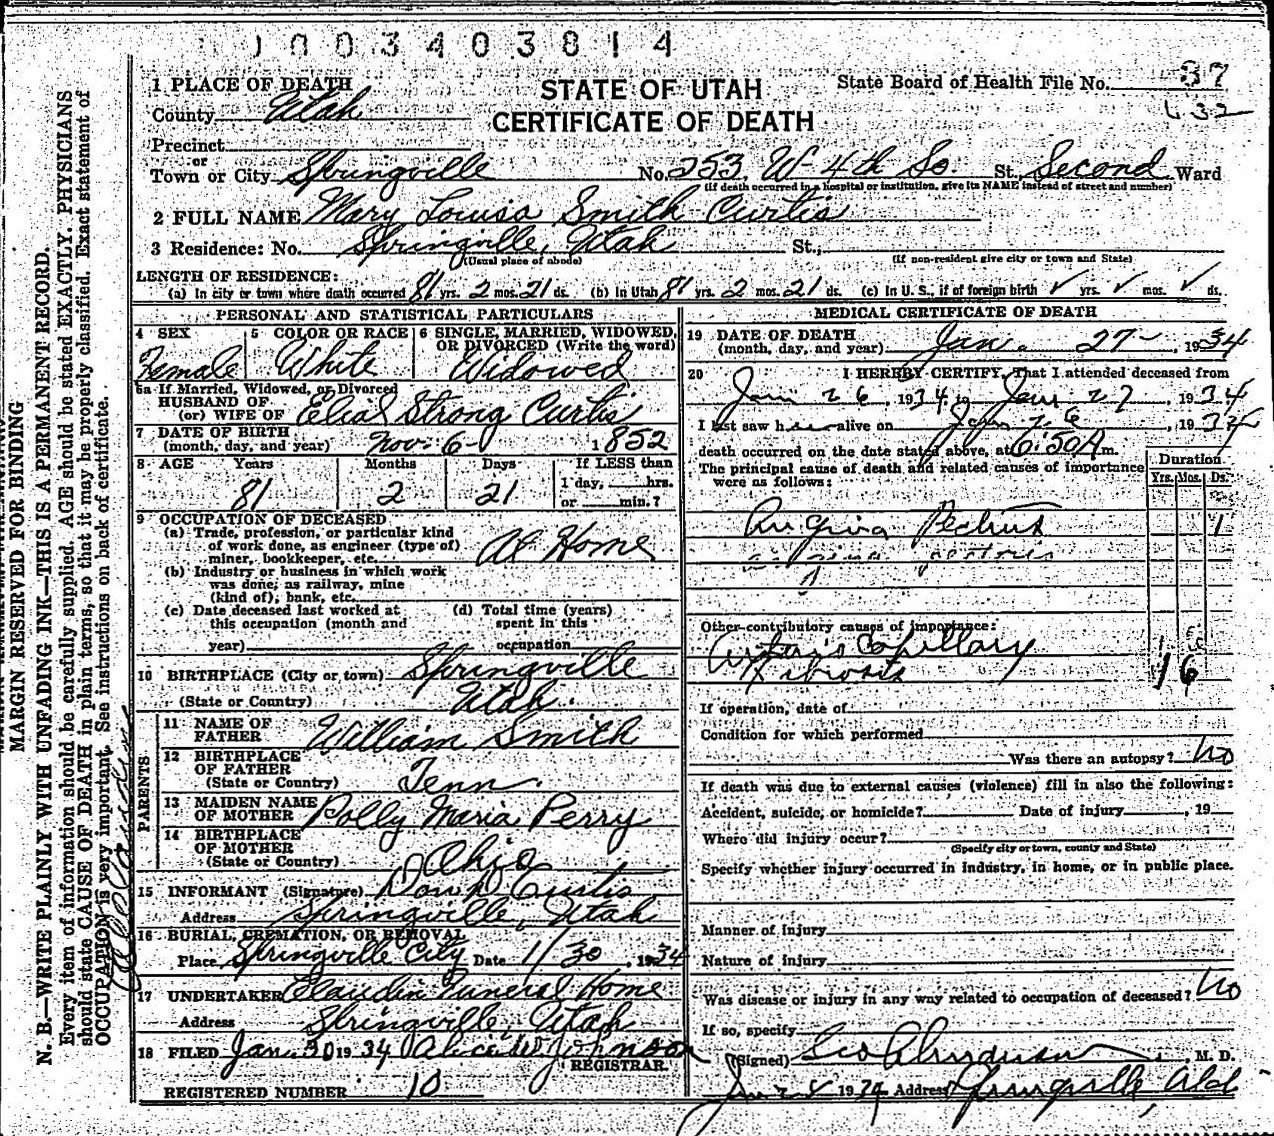 1003403814
1 PLACE OF DEATH
STATE OF UTAH
CERTIFICATE OF DEATH
State Board of Health File No. 37
632
County Utah
Precinct
or
Town or City Springville No. 253 W 4th So. St., Second Ward
(If death occurred in a hospital or institution, give its NAME instead of street and number)
2 FULL NAME Mary Louisa Smith Curtis
3 Residence: No. Springville, Utah St.,
(Usual place of abode) (If non-resident give city or town and State)
LENGTH OF RESIDENCE:
(a) In city or town where death occurred 81 yrs. 2 mos. 21 ds. (b) In Utah 81 yrs. 2 mos. 21 ds. (c) In U. S., if of foreign birth ✓ yrs. ✓ mos. ✓ ds.
PERSONAL AND STATISTICAL PARTICULARS
4 SEX
Female
5 COLOR OR RACE
White
6 SINGLE, MARRIED, WIDOWED, OR DIVORCED (Write the word)
Widowed
6a If Married, Widowed, or Divorced
HUSBAND OF
(or) WIFE OF Elial Strong Curtis
7 DATE OF BIRTH
(month, day, and year) Nov. 6 - 1852
8 AGE Years Months Days If LESS than
81 2 21 1 day, hrs.
or min.?
9 OCCUPATION OF DECEASED
(a) Trade, profession, or particular kind
of work done, as engineer (type of)
miner, bookkeeper, etc. At Home
(b) Industry or business in which work
was done, as railway, mine
(kind of), bank, etc.
(c) Date deceased last worked at
this occupation (month and
year)
(d) Total time (years)
spent in this
occupation
10 BIRTHPLACE (City or town) Springville
(State or Country) Utah.
PARENTS
11 NAME OF
FATHER William Smith
12 BIRTHPLACE
OF FATHER
(State or Country) Tenn.
13 MAIDEN NAME
OF MOTHER Polly Maria Perry
14 BIRTHPLACE
OF MOTHER
(State or Country) Ohio
15 INFORMANT (Signature) Don D Curtis
Address Springville, Utah
16 BURIAL, CREMATION, OR REMOVAL
Place Springville City Date 1/30, 1934
17 UNDERTAKER Claudin Funeral Home
Address Springville, Utah
18 FILED Jan. 30 1934 Johnson
REGISTRAR.
REGISTERED NUMBER 10
MEDICAL CERTIFICATE OF DEATH
19 DATE OF DEATH
(month, day, and year) Jan. 27 - , 1934
20 I HEREBY CERTIFY, That I attended deceased from
Jan 26, 1934, to Jan 27, 1934
I last saw her alive on Jan 26, 1934
death occurred on the date stated above, at 6:50 A m.
The principal cause of death and related causes of importance
were as follows:
Duration
Yrs. Mos. Ds.
Angina Pectoris 1
angina pectoris
Other contributory causes of importance:
Capillary
Fibrosis 16
If operation, date of
Condition for which performed
Was there an autopsy? No
If death was due to external causes (violence) fill in also the following:
Accident, suicide, or homicide? Date of injury , 19
Where did injury occur?
(Specify city or town, county and State)
Specify whether injury occurred in industry, in home, or in public place.
Manner of injury
Nature of injury
Was disease or injury in any way related to occupation of deceased? No
If so, specify
(Signed) , M. D.
1934 Address Springville, Utah
MARGIN RESERVED FOR BINDING
N. B.—WRITE PLAINLY WITH UNFADING INK—THIS IS A PERMANENT RECORD.
Every item of information should be carefully supplied. AGE should be stated EXACTLY. PHYSICIANS
should state CAUSE OF DEATH in plain terms, so that it may be properly classified. Exact statement of
OCCUPATION is very important. See instructions on back of certificate.